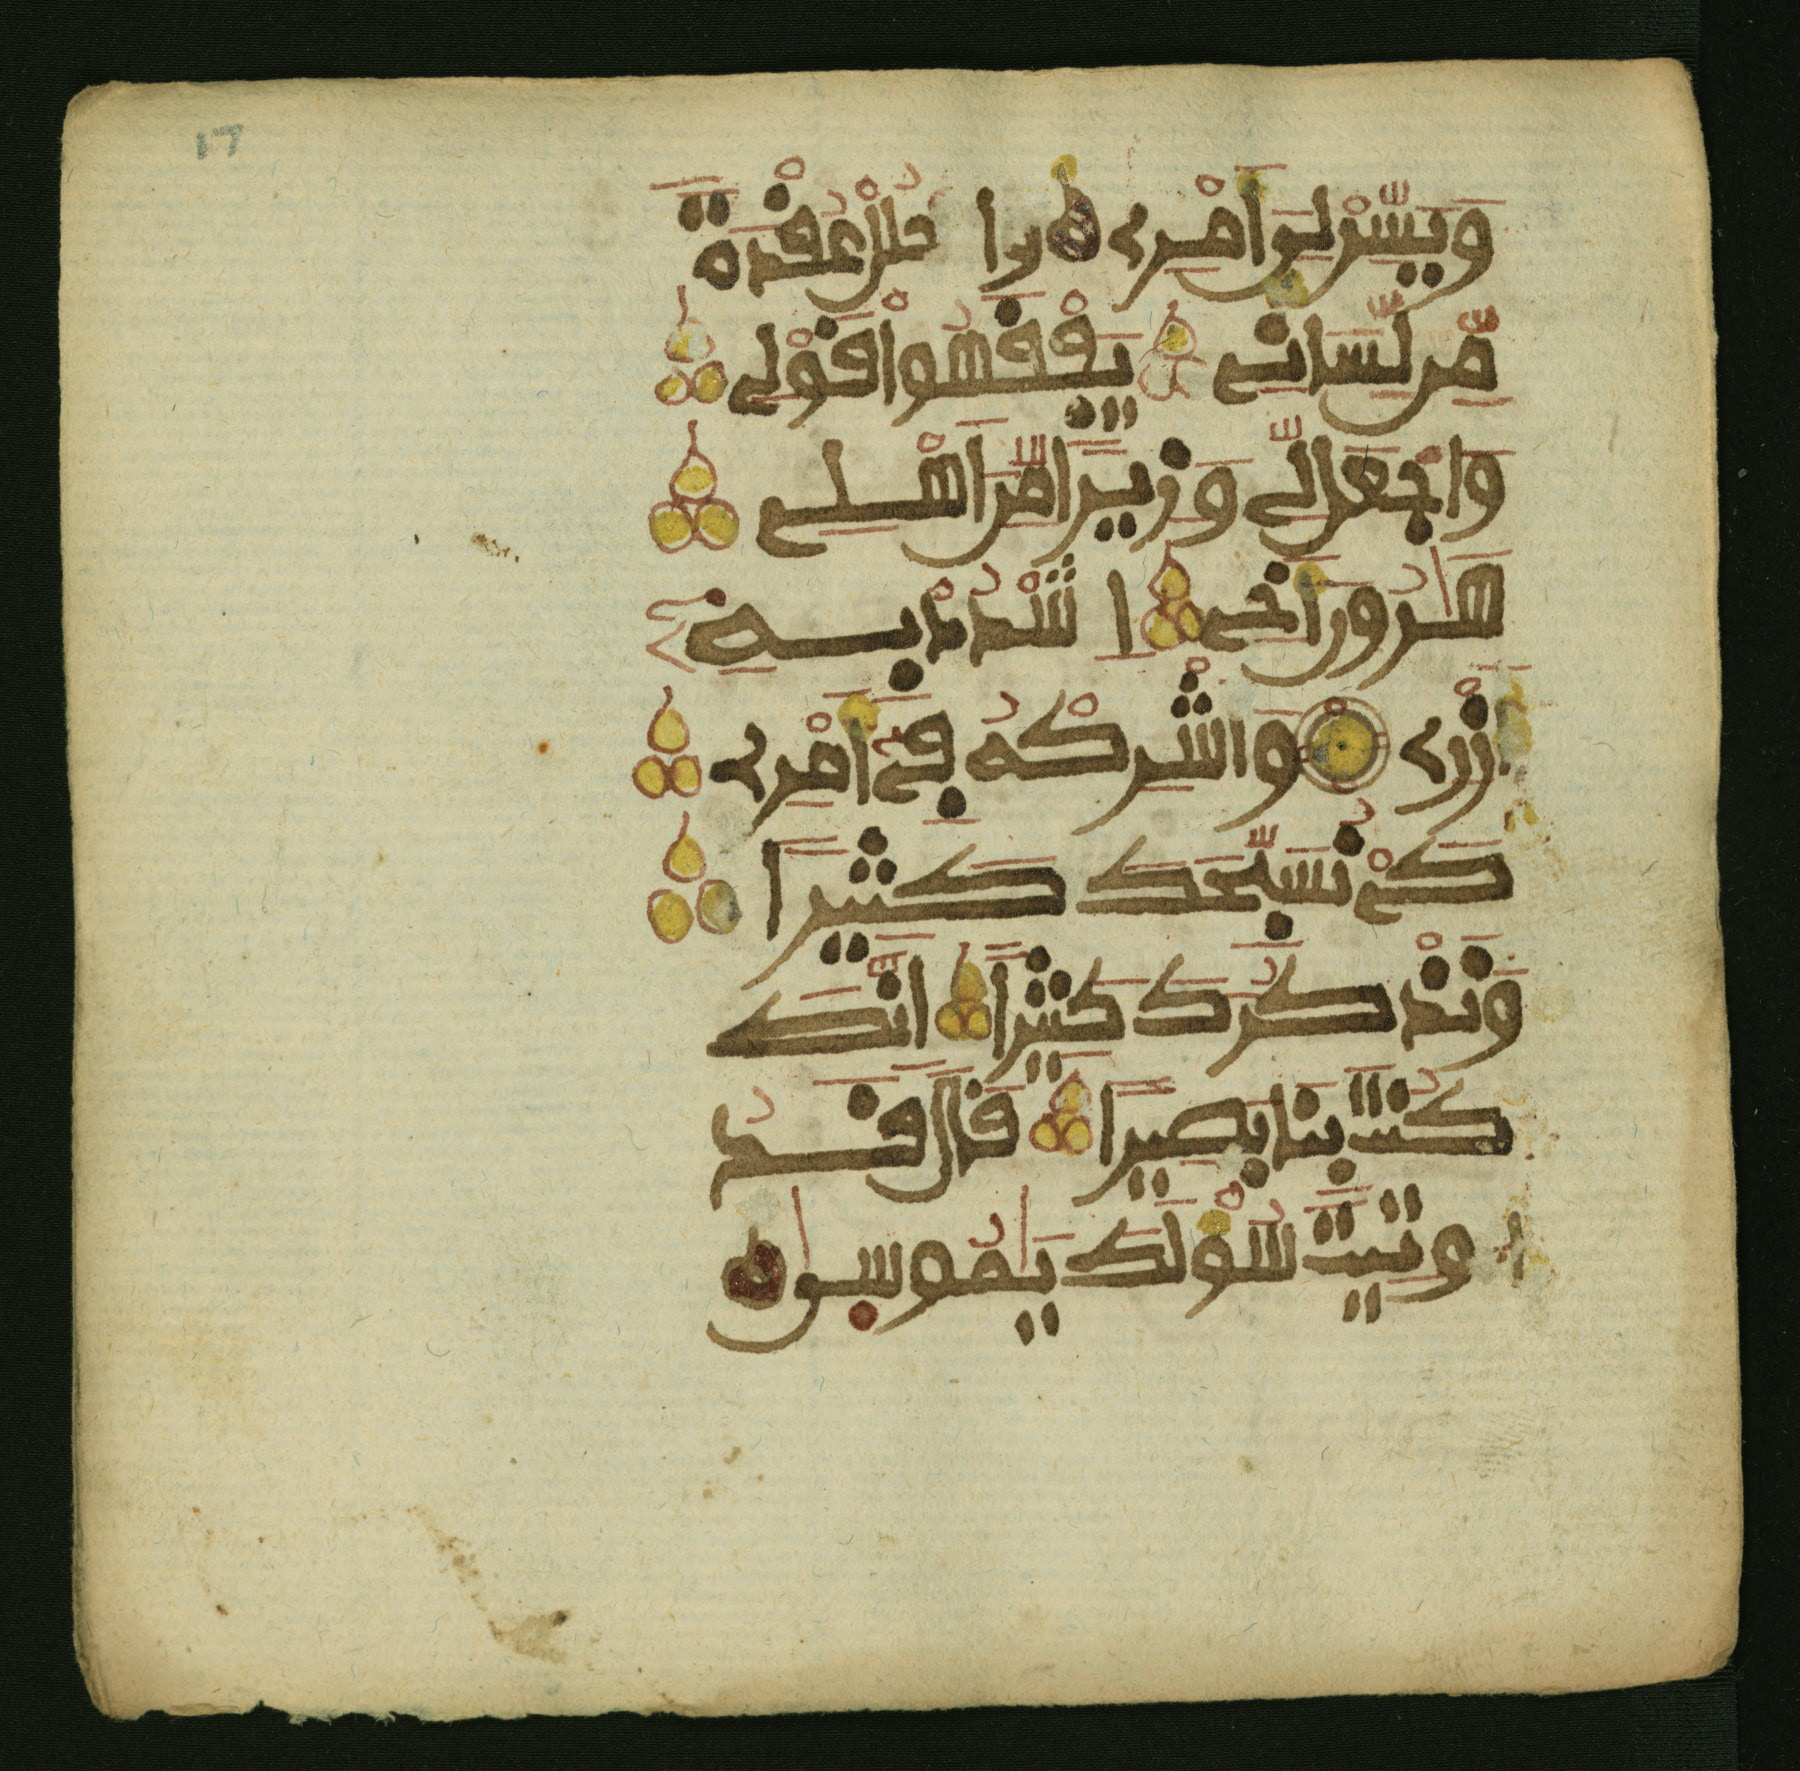 ١٦
وَيَسِّرْ لِي أَمْرِي وَاحْلُلْ عُقْدَةً
مِّن لِّسَانِي يَفْقَهُوا قَوْلِي
وَاجْعَل لِّي وَزِيرًا مِّنْ أَهْلِي
هَٰرُونَ أَخِي اشْدُدْ بِهِ
أَزْرِي وَأَشْرِكْهُ فِي أَمْرِي
كَيْ نُسَبِّحَكَ كَثِيرًا
وَنَذْكُرَكَ كَثِيرًا إِنَّكَ
كُنتَ بِنَا بَصِيرًا قَالَ قَدُ
اوتِيتَ سُؤْلَكَ يَٰمُوسَىٰ